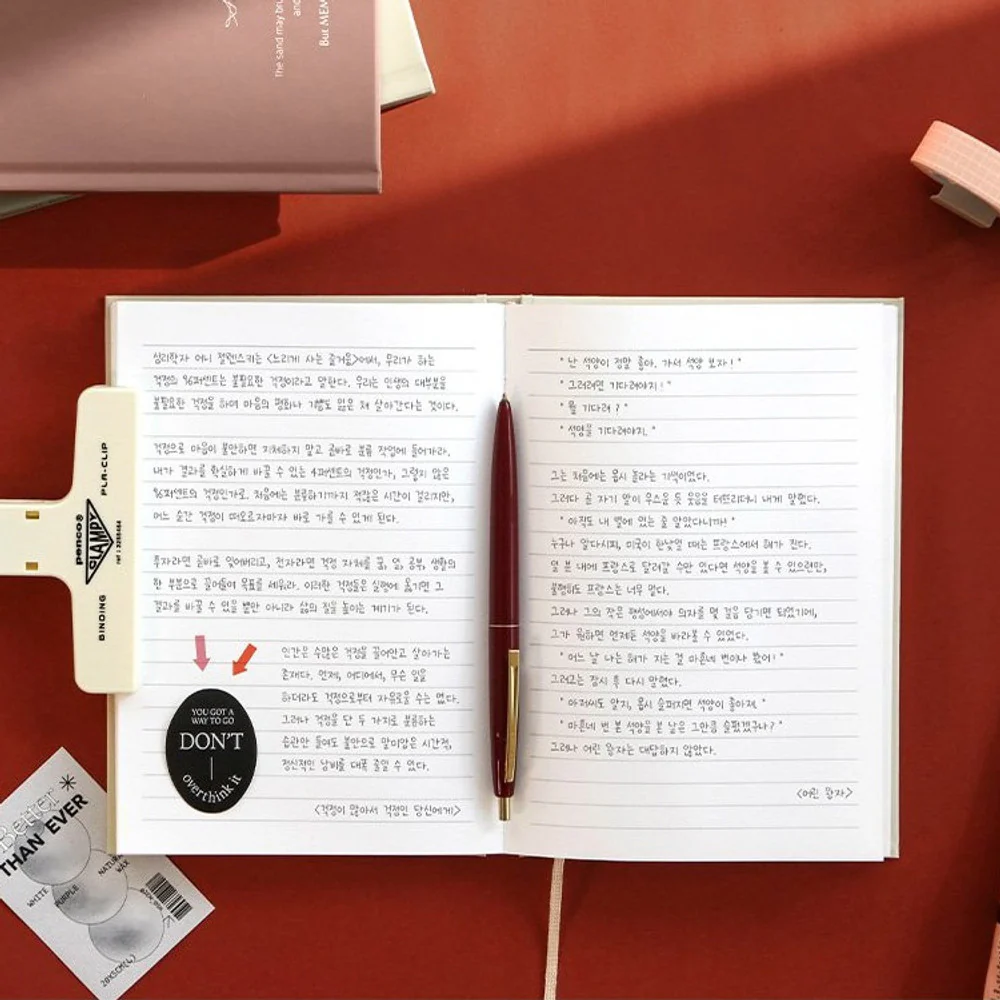 The sand may bru
and
But MEM
심리학자 어니 젤린스키는 <느리게 사는 즐거움>에서, 우리가 하는
걱정의 96퍼센트는 불필요한 걱정이라고 말한다. 우리는 인생의 대부분을
불필요한 걱정을 하며 마음의 평화나 기쁨도 잃은 채 살아간다는 것이다.
걱정으로 마음이 불안하면 지체하지 말고 곧바로 분류 작업에 들어가라.
내가 결과를 확실하게 바꿀 수 있는 4퍼센트의 걱정인가, 그렇지 않은
96퍼센트의 걱정인가로. 처음에는 분류하기까지 적잖은 시간이 걸리지만,
어느 순간 걱정이 떠오르자마자 바로 가를 수 있게 된다.
후자라면 곧바로 잊어버리고, 전자라면 걱정 자체를 꿈, 일, 공부, 생활의
한 부분으로 끌어들여 목표를 세워라. 이러한 걱정들은 실행에 옮기면 그
결과를 바꿀 수 있을 뿐만 아니라 삶의 질을 높이는 계기가 된다.
인간은 수많은 걱정을 끌어안고 살아가는
존재다. 언제, 어디에서, 무슨 일을
하더라도 걱정으로부터 자유로울 수는 없다.
그러나 걱정을 단 두 가지로 분류하는
습관만 들여도 불안으로 말미암은 시간적,
정신적인 낭비를 대폭 줄일 수 있다.
<걱정이 많아서 걱정인 당신에게>
YOU GOT A
WAY TO GO
DON'T
overthink it
" 난 석양이 정말 좋아. 가서 석양 보자! "
" 그러려면 기다려야지! "
" 뭘 기다려? "
" 석양을 기다려야지. "
그는 처음에는 몹시 놀라는 기색이었다.
그러다 곧 자기 말이 우스운 듯 웃음을 터뜨리더니 내게 말했다.
" 아직도 내 별에 있는 줄 알았다니까! "
누구나 알다시피, 미국이 한낮일 때는 프랑스에서 해가 진다.
일 분 내에 프랑스로 달려갈 수만 있다면 석양을 볼 수 있으련만,
불행히도 프랑스는 너무 멀다.
그러나 그의 작은 행성에서야 의자를 몇 걸음 당기면 되었기에,
그가 원하면 언제든 석양을 바라볼 수 있었다.
" 어느 날 나는 해가 지는 걸 마흔네 번이나 봤어! "
그러고는 잠시 후 다시 말했다.
" 아저씨도 알지, 몹시 슬퍼지면 석양이 좋아져. "
" 마흔네 번 본 석양을 본 날은 그만큼 슬펐겠구나? "
그러나 어린 왕자는 대답하지 않았다.
<어린 왕자>
PLA-CLIP
penco®
CLAMPY
ref : 3265464
BINDING
Better
THAN EVER
WHITE
PURPLE
NATUR
WAX
20X5CM(4)